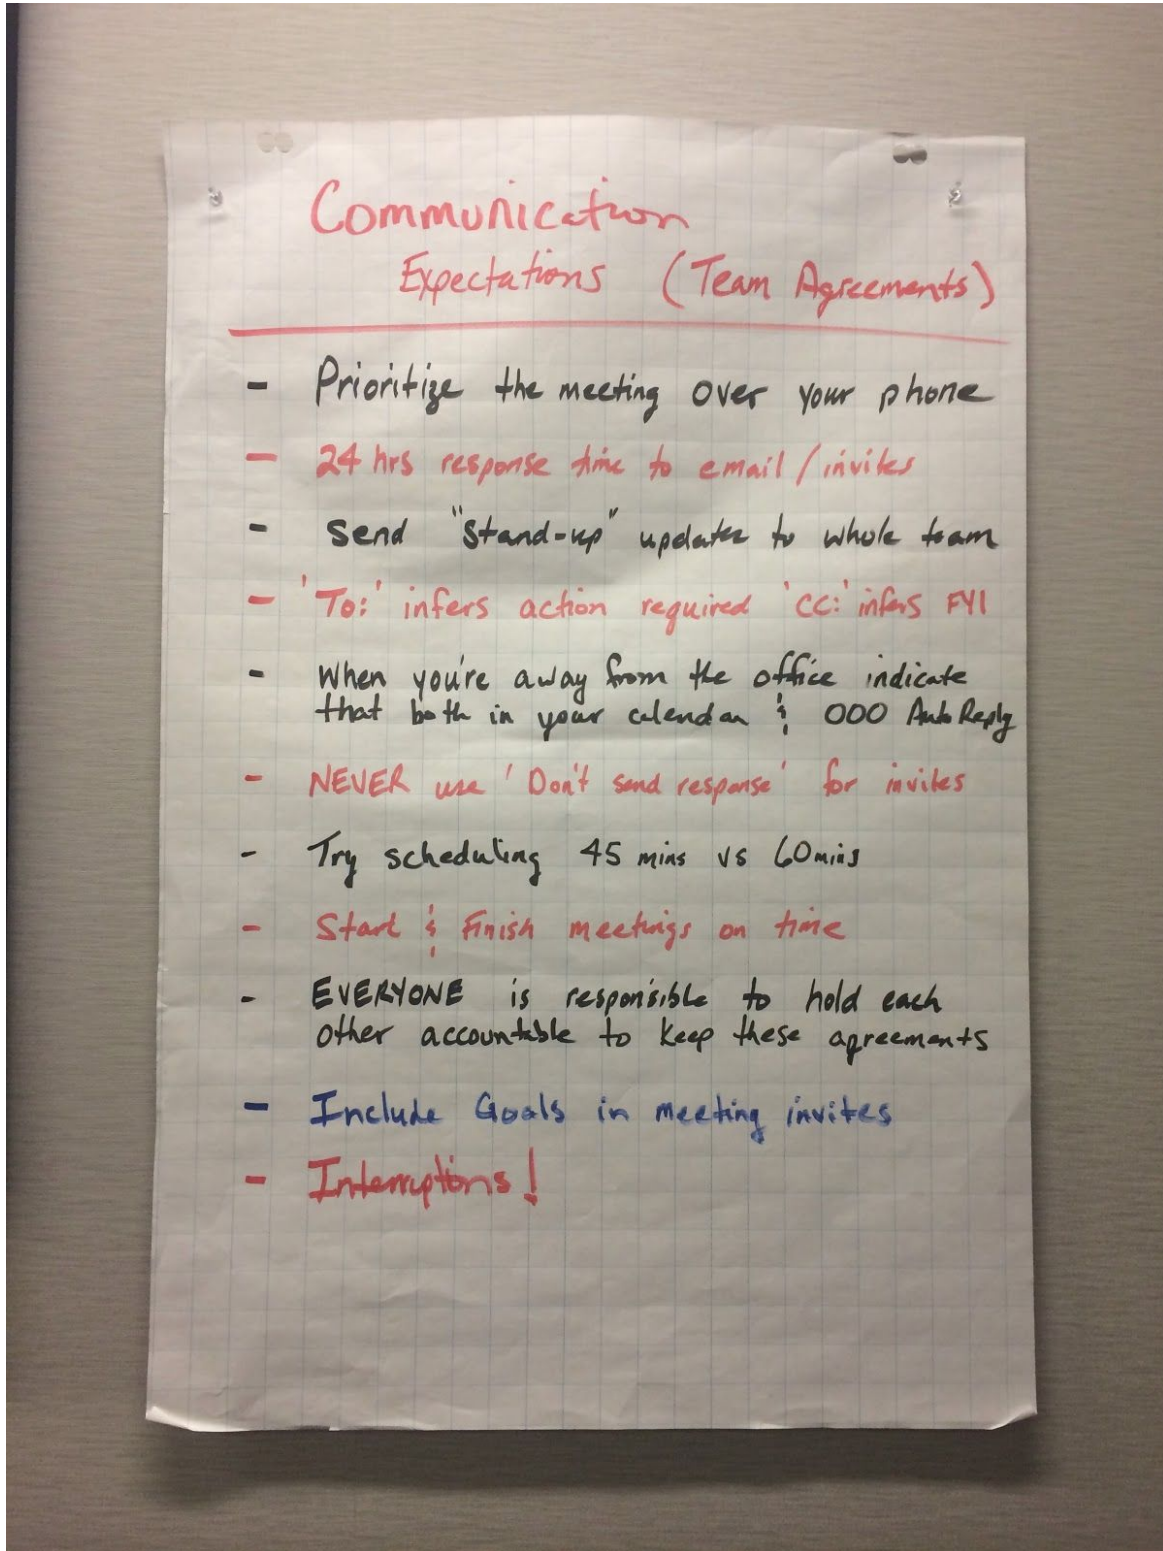 Communication
Expectations (Team Agreements)
- Prioritize the meeting over your phone
- 24 hrs response time to email / invites
- Send "Stand-up" updates to whole team
- 'To:' infers action required 'CC:' infers FYI
- When you're away from the office indicate
that both in your calendar & OOO Auto Reply
- NEVER use 'Don't send response' for invites
- Try scheduling 45 mins vs 60 mins
- Start & Finish meetings on time
- EVERYONE is responsible to hold each
other accountable to keep these agreements
- Include Goals in meeting invites
- Interruptions!